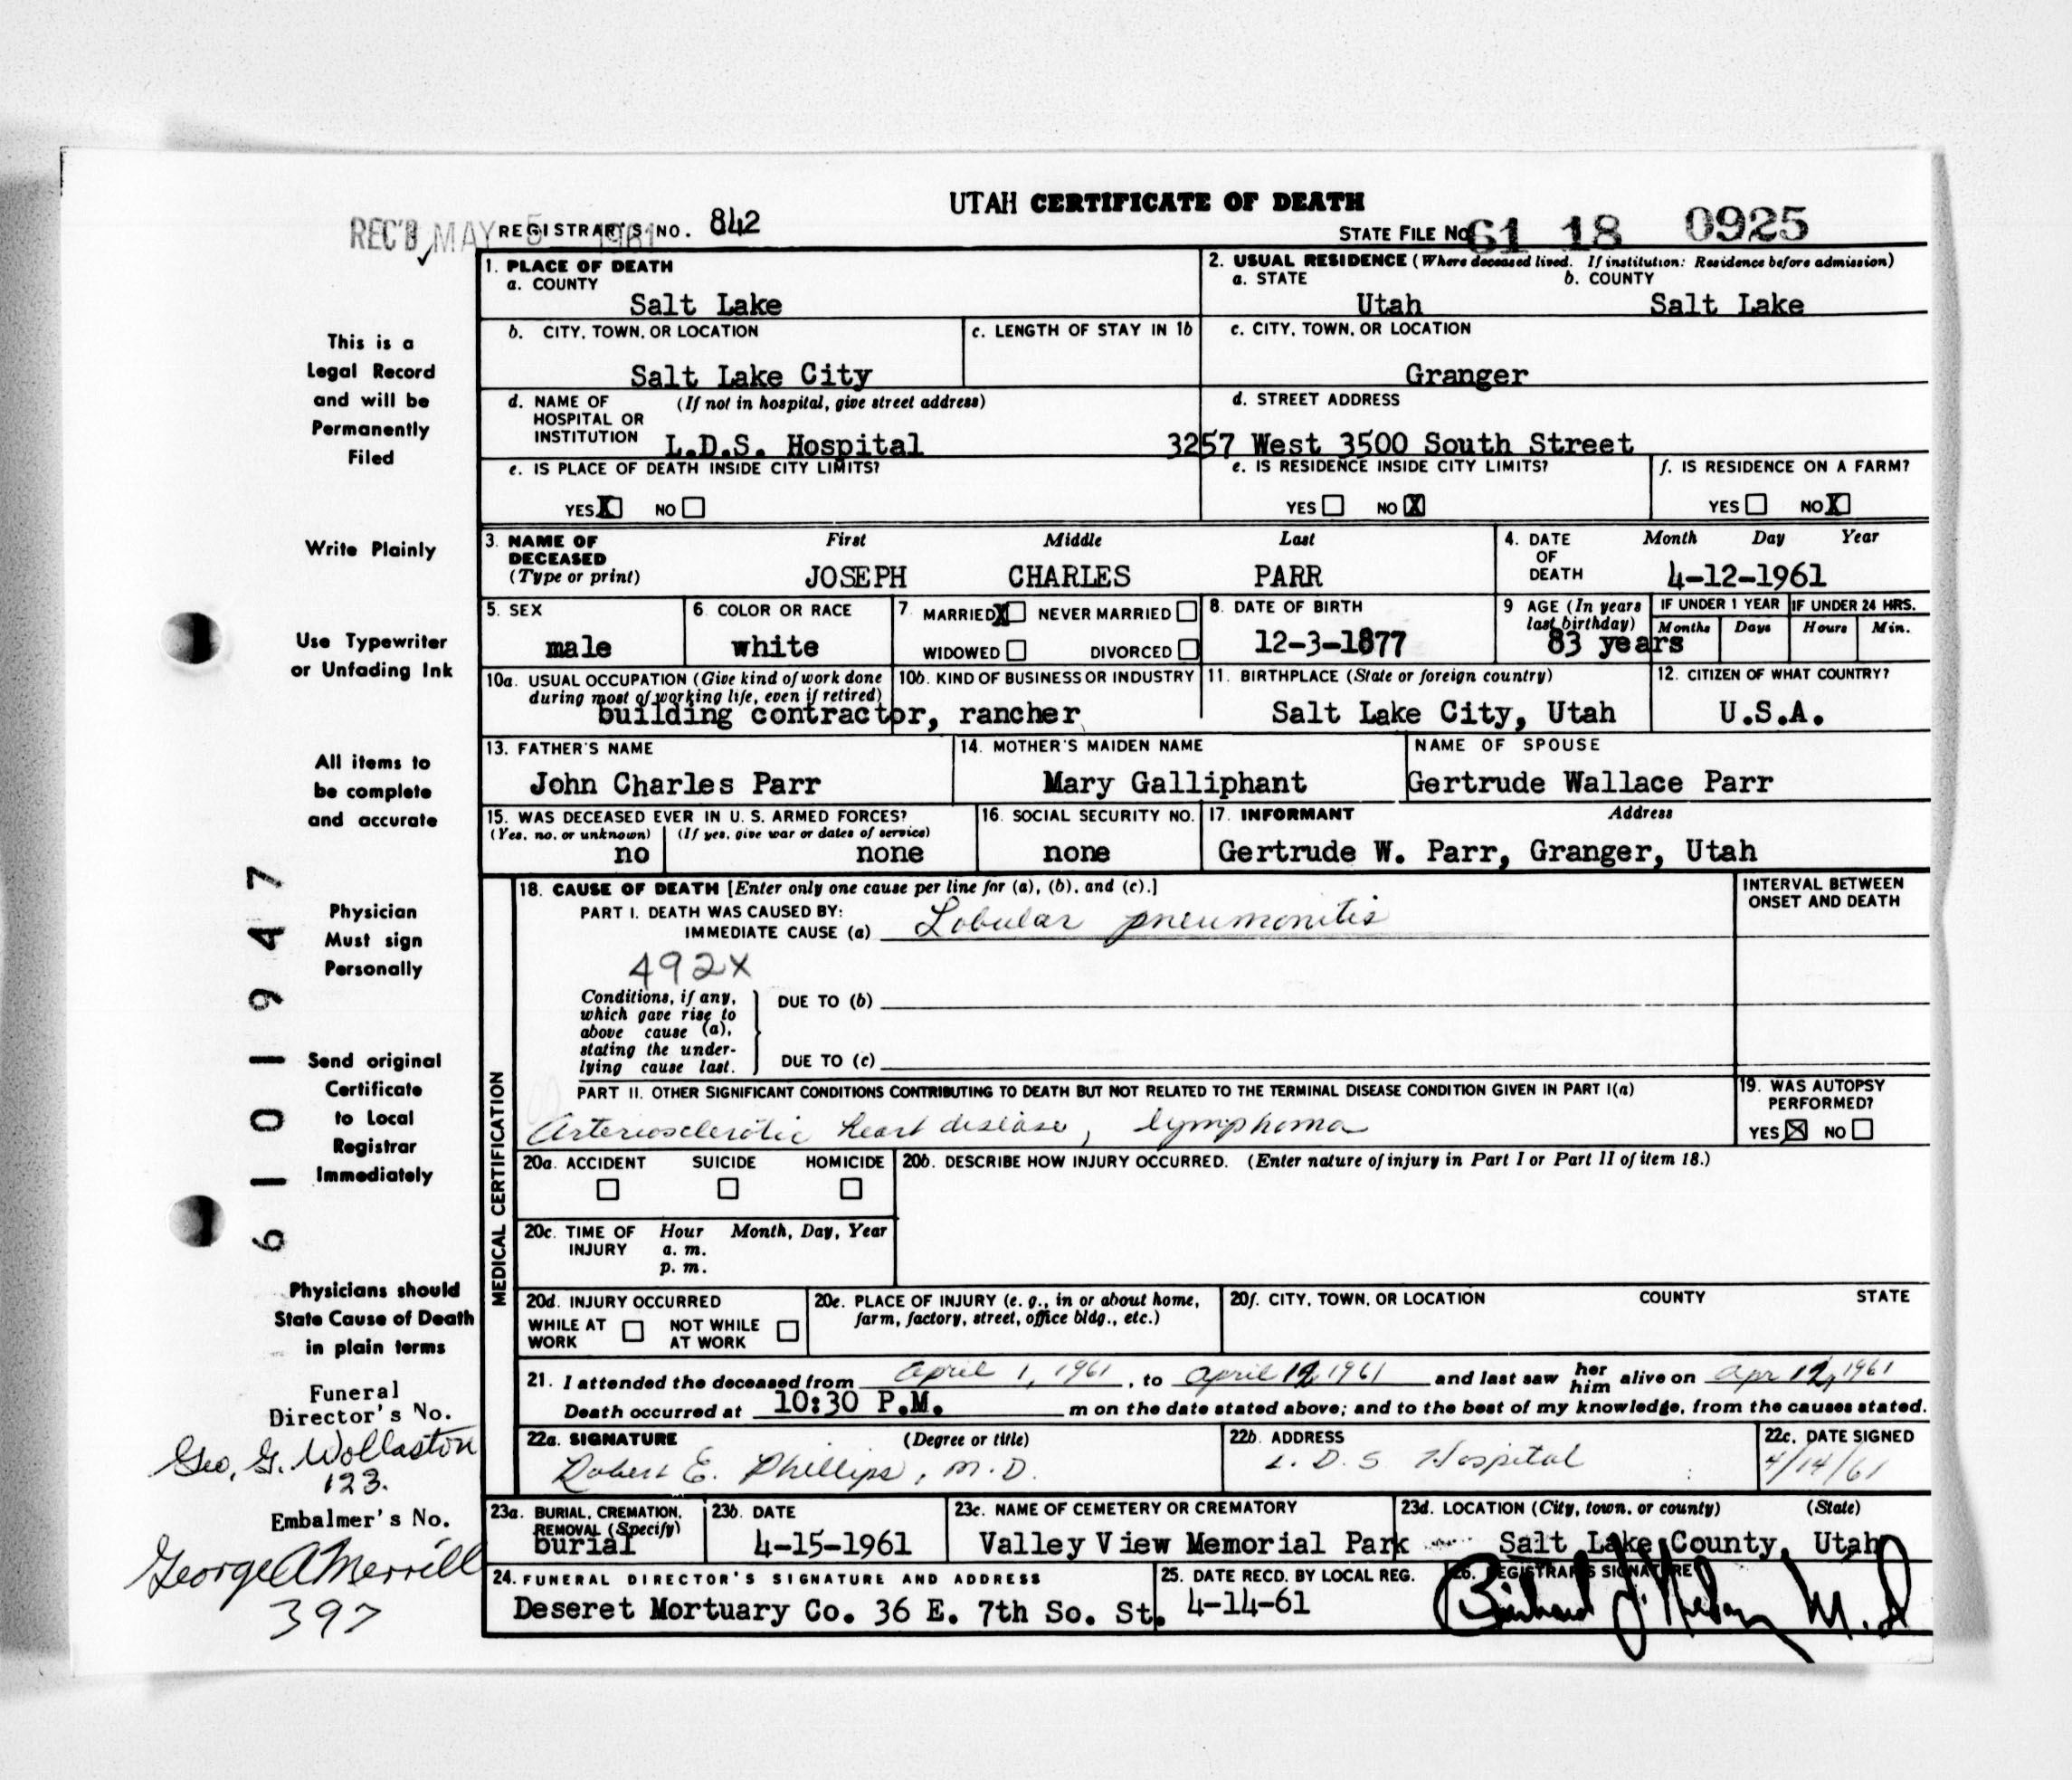 UTAH CERTIFICATE OF DEATH
REC'D MAY 5 1961 REGISTRAR'S NO. 842
STATE FILE NO. 61 18 0925
1. PLACE OF DEATH
a. COUNTY
Salt Lake
2. USUAL RESIDENCE (Where deceased lived. If institution: Residence before admission)
a. STATE b. COUNTY
Utah Salt Lake
b. CITY, TOWN, OR LOCATION
Salt Lake City
c. LENGTH OF STAY IN 1b
c. CITY, TOWN, OR LOCATION
Granger
d. NAME OF (If not in hospital, give street address)
HOSPITAL OR
INSTITUTION L.D.S. Hospital
d. STREET ADDRESS
3257 West 3500 South Street
e. IS PLACE OF DEATH INSIDE CITY LIMITS?
YES X NO
e. IS RESIDENCE INSIDE CITY LIMITS?
YES NO X
f. IS RESIDENCE ON A FARM?
YES NO X
3. NAME OF First Middle Last
DECEASED
(Type or print) JOSEPH CHARLES PARR
4. DATE Month Day Year
OF
DEATH 4-12-1961
5. SEX
male
6. COLOR OR RACE
white
7. MARRIED X NEVER MARRIED
WIDOWED DIVORCED
8. DATE OF BIRTH
12-3-1877
9 AGE (In years
last birthday)
83 years
IF UNDER 1 YEAR IF UNDER 24 HRS.
Months Days Hours Min.
10a. USUAL OCCUPATION (Give kind of work done
during most of working life, even if retired)
10b. KIND OF BUSINESS OR INDUSTRY
building contractor, rancher
11. BIRTHPLACE (State or foreign country)
Salt Lake City, Utah
12. CITIZEN OF WHAT COUNTRY?
U.S.A.
13. FATHER'S NAME
John Charles Parr
14. MOTHER'S MAIDEN NAME
Mary Galliphant
NAME OF SPOUSE
Gertrude Wallace Parr
15. WAS DECEASED EVER IN U. S. ARMED FORCES?
(Yes, no, or unknown) (If yes, give war or dates of service)
no none
16. SOCIAL SECURITY NO.
none
17. INFORMANT Address
Gertrude W. Parr, Granger, Utah
MEDICAL CERTIFICATION
18. CAUSE OF DEATH [Enter only one cause per line for (a), (b), and (c).]
PART I. DEATH WAS CAUSED BY:
IMMEDIATE CAUSE (a) Lobular pneumonitis
INTERVAL BETWEEN
ONSET AND DEATH
492X
Conditions, if any,
which gave rise to
above cause (a),
stating the under-
lying cause last.
DUE TO (b)
DUE TO (c)
PART II. OTHER SIGNIFICANT CONDITIONS CONTRIBUTING TO DEATH BUT NOT RELATED TO THE TERMINAL DISEASE CONDITION GIVEN IN PART I(a)
Arteriosclerotic heart disease, lymphoma
19. WAS AUTOPSY
PERFORMED?
YES X NO
20a. ACCIDENT SUICIDE HOMICIDE
20b. DESCRIBE HOW INJURY OCCURRED. (Enter nature of injury in Part I or Part II of item 18.)
20c. TIME OF Hour Month, Day, Year
INJURY a. m.
p. m.
20d. INJURY OCCURRED
WHILE AT NOT WHILE
WORK AT WORK
20e. PLACE OF INJURY (e. g., in or about home,
farm, factory, street, office bldg., etc.)
20f. CITY, TOWN, OR LOCATION COUNTY STATE
21. I attended the deceased from April 1, 1961, to April 12, 1961 and last saw her him alive on Apr 12, 1961
Death occurred at 10:30 P.M. m on the date stated above; and to the best of my knowledge, from the causes stated.
22a. SIGNATURE (Degree or title)
Robert E. Phillips, M.D.
22b. ADDRESS
L. D. S Hospital
22c. DATE SIGNED
4/14/61
23a. BURIAL, CREMATION,
REMOVAL (Specify)
burial
23b. DATE
4-15-1961
23c. NAME OF CEMETERY OR CREMATORY
Valley View Memorial Park
23d. LOCATION (City, town, or county) (State)
Salt Lake County, Utah
24. FUNERAL DIRECTOR'S SIGNATURE AND ADDRESS
Deseret Mortuary Co. 36 E. 7th So. St.
25. DATE RECD. BY LOCAL REG.
4-14-61
26. REGISTRAR'S SIGNATURE
M.D
This is a
Legal Record
and will be
Permanently
Filed
Write Plainly
Use Typewriter
or Unfading Ink
All items to
be complete
and accurate
Physician
Must sign
Personally
Send original
Certificate
to Local
Registrar
Immediately
Physicians should
State Cause of Death
in plain terms
Funeral
Director's No.
Geo. G. Wollaston
123.
Embalmer's No.
George A Merrill
397
6101947